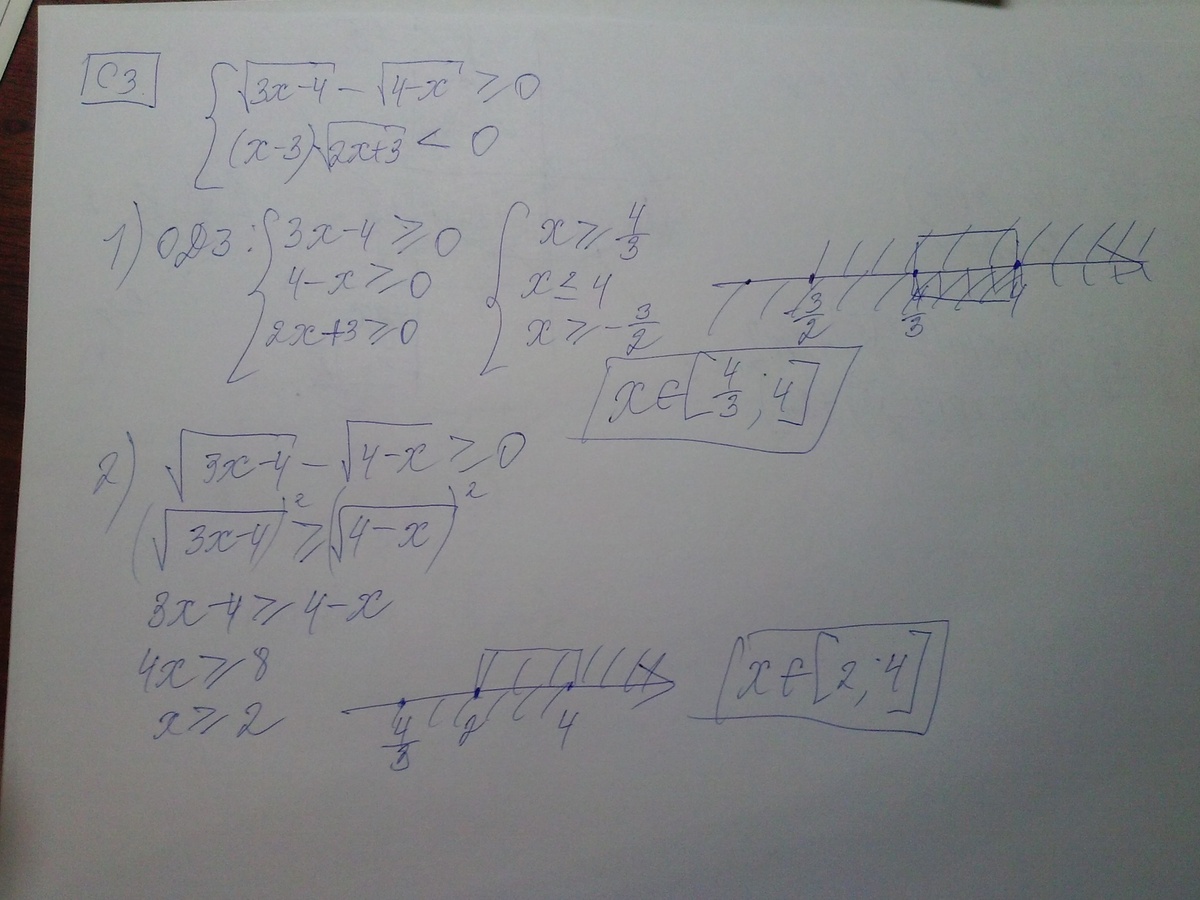 C3.
{ √(3x-4) - √(4-x) ≥ 0
(x-3)·√(2x+3) < 0
1) ОДЗ: { 3x-4 ≥ 0 { x ≥ 4/3
4-x ≥ 0 x ≤ 4
2x+3 ≥ 0 x ≥ -3/2
-3/2 4/3 4
x ∈ [4/3; 4]
2) √(3x-4) - √(4-x) ≥ 0
(√(3x-4))² ≥ (√(4-x))²
3x-4 ≥ 4-x
4x ≥ 8
x ≥ 2
4/3 2 4
x ∈ [2; 4]